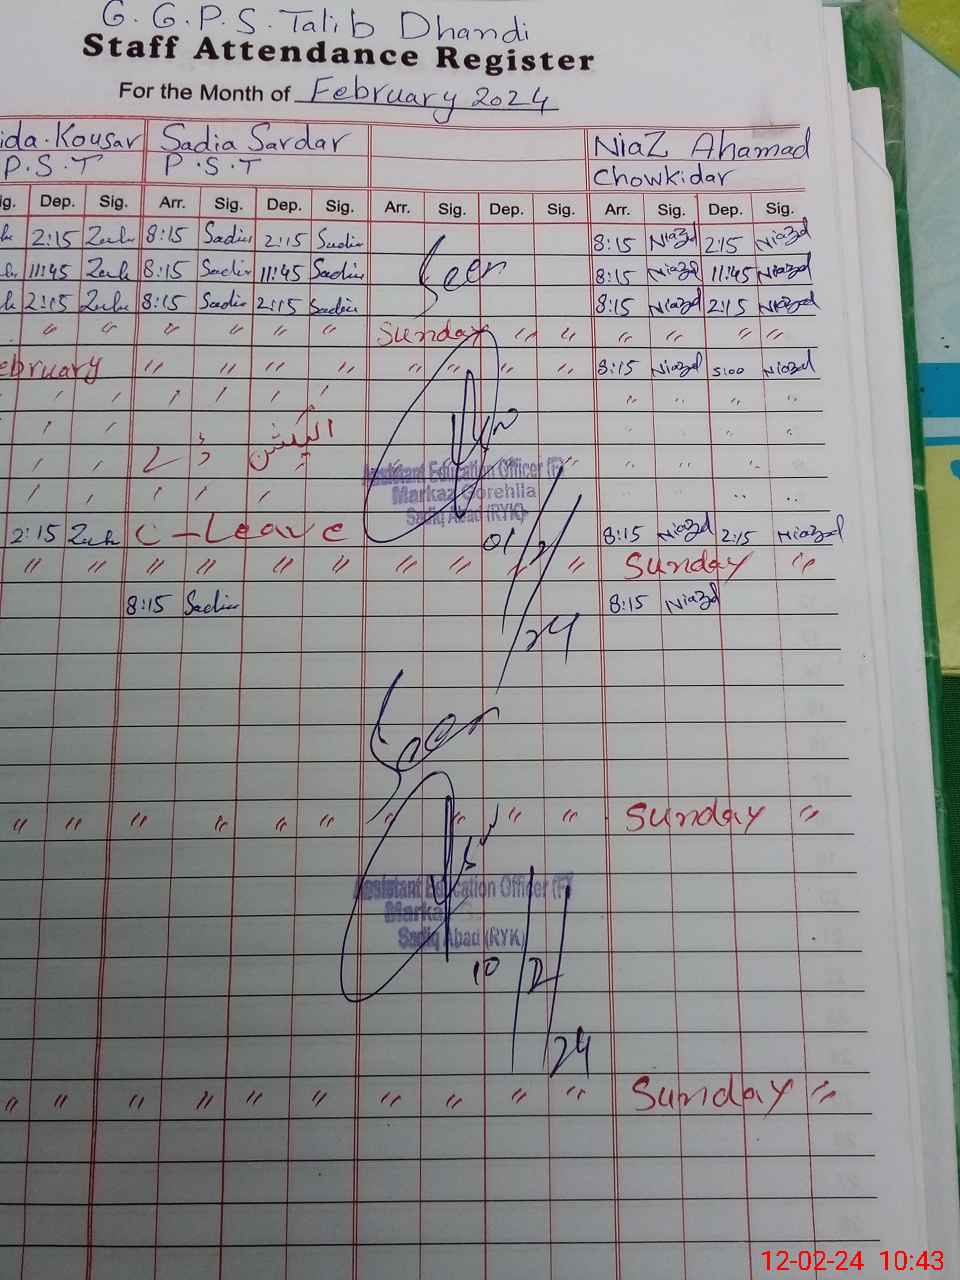 G. G. P. S. Talib Dhandi
Staff Attendance Register
For the Month of February 2024
ida. Kousar Sadia Sardar Niaz Ahamad
P.S.T P.S.T Chowkidar
ig. Dep. Sig. Arr. Sig. Dep. Sig. Arr. Sig. Dep. Sig. Arr. Sig. Dep. Sig.
2:15 8:15 Sadia 2:15 Sadia Seen 8:15 Niazd 2:15 Niazd
11:45 8:15 Sadia 11:45 Sadia 8:15 Niazd 11:45 Niazd
2:15 8:15 Sadia 2:15 Sadia 8:15 Niazd 2:15 Niazd
" " " " " " Sunday " " " " " "
ebruary " " " " " " " " 8:15 Niazd 5:00 Niazd
الیکشن ڈے
Assistant Education Officer (F)
Markaz Gorehlla
Sadiq Abad (RYK)
2:15 C-Leave 01/2/24 8:15 Niazd 2:15 Niazd
" " " " " " " " " " Sunday "
8:15 Sadia 8:15 Niazd
Seen
" " " " " " " " " " Sunday "
Assistant Education Officer (F)
Marka
Sadiq Abad (RYK)
10/2/24
" " " " " " " " " " Sunday "
12-02-24 10:43